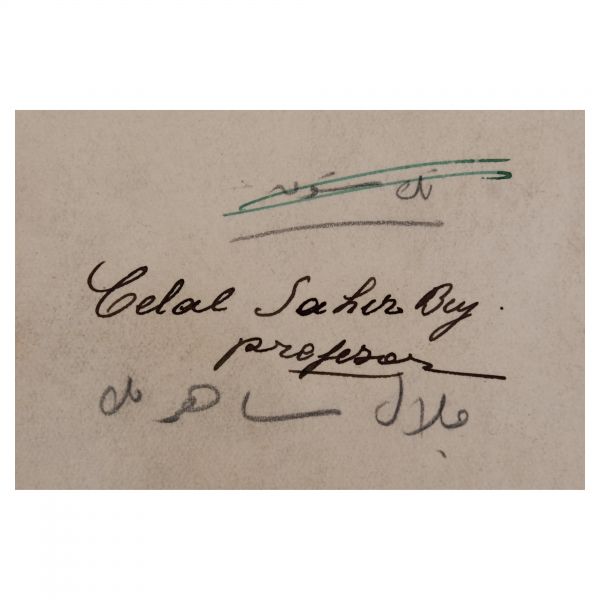 Celal Sahir Bey.
profesor
جلال ساهر بك